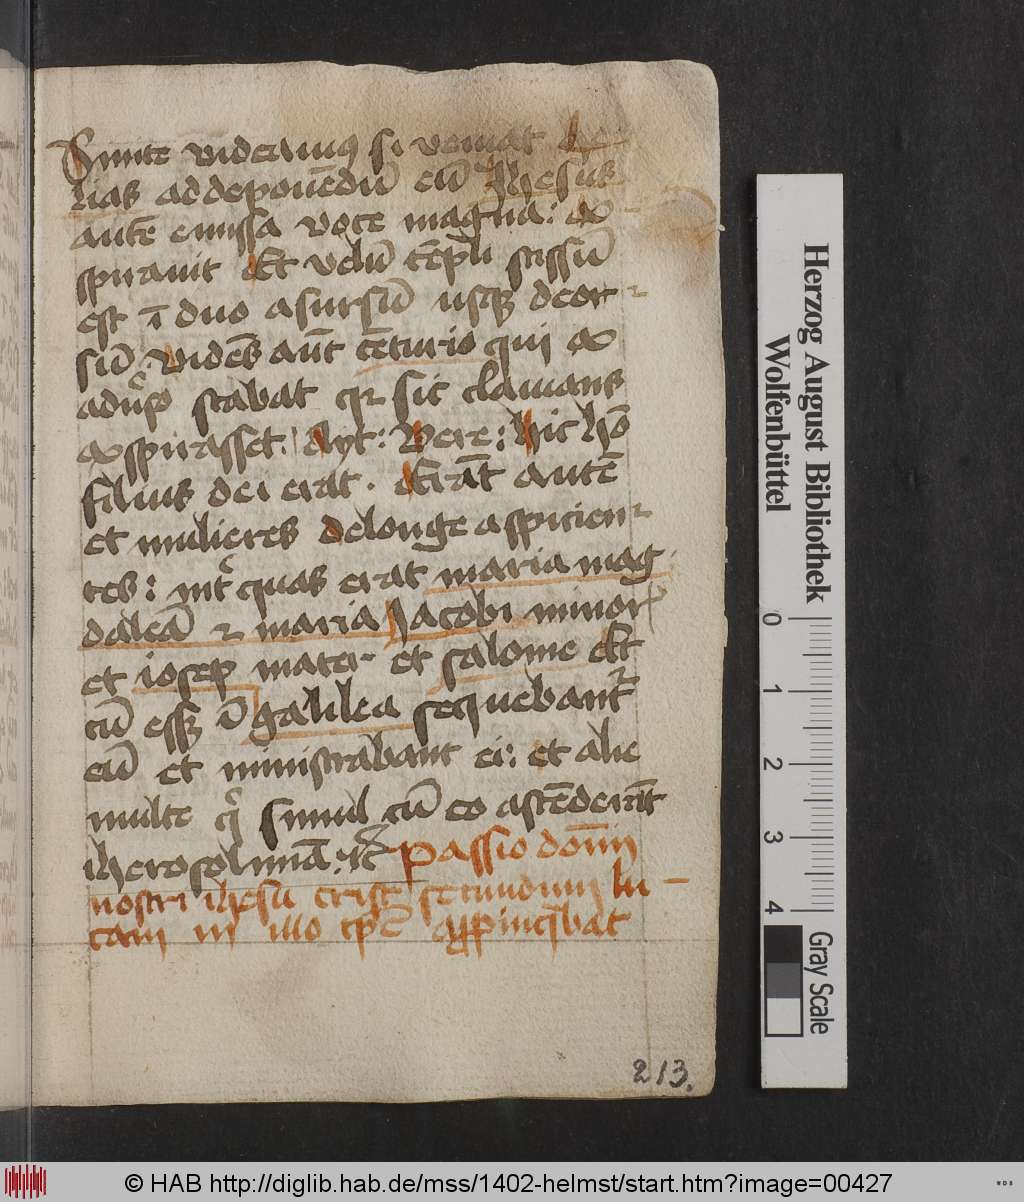 Sinite videamus si veniat he
lias ad deponēdū eū Jhesus
autē emissa voce magna: ex
spiravit Et velū tēpli scissū
est ī duo a sursū usque deor
sū. Vidēs aūt cēturio qui ex
adūso stabat qr sic clamans
exspirasset: Ayt: Vere: hic hō
filius dei erat. Erāt autē
et mulieres de longe aspicien
tes: int͛ quas erat maria mag
dalēa et maria Jacobi minor
et iosep mater et salome Et
cū esset ī galilea sequebant
eū et ministrabant ei: et alie
multe q̄ simul cū eo ascēderūt
iherosolimā ⁊c̄ Passio domī
nostri ihesu crist secundum lu
cam in illo tpē apropinq̄bat
213.
Herzog August Bibliothek
Wolfenbüttel
0 1 2 3 4
Gray Scale
© HAB http://diglib.hab.de/mss/1402-helmst/start.htm?image=00427